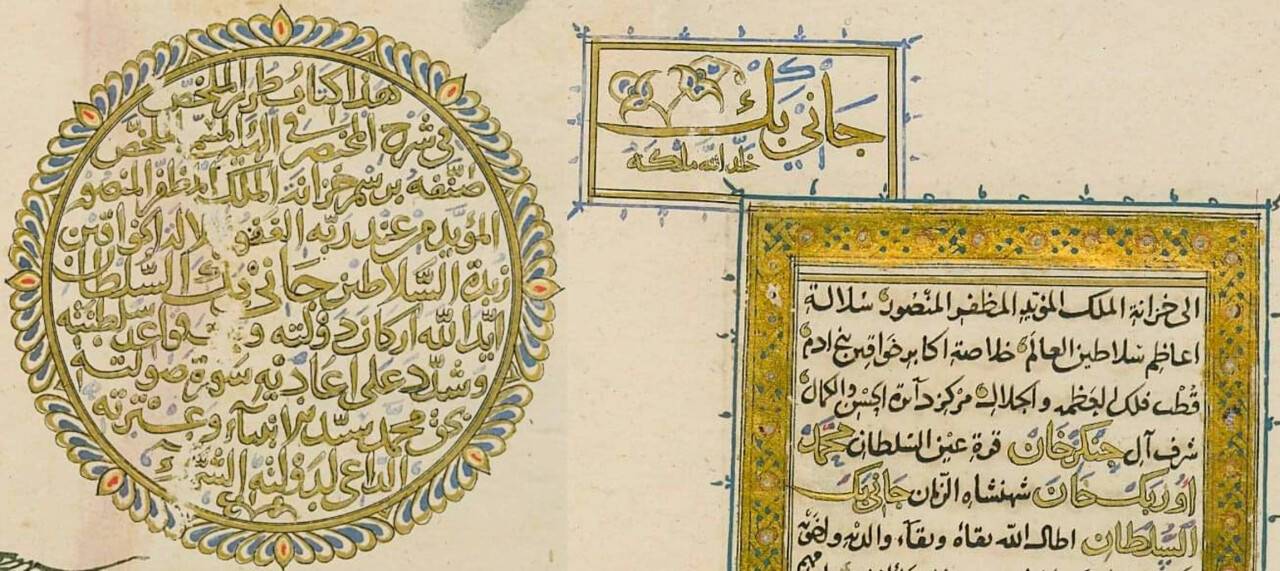 هذا كتاب طرر الملخص
في شرح المختصر في الملخص
صنفه برسم خزانة الملك المظفر المنصور
المؤيد من عند ربه الغفور الخواقين
زبدة السلاطين جاني بك السلطان
ايد الله اركان دولته وقواعد سلطنته
وشدد على اعاديه سورة صولته
بحق محمد سيد الانبياء وعترته
الداعي لدولته
جاني بك
خلد الله ملكه
الى خزانة الملك المؤيد المظفر المنصور سلالة
اعاظم سلاطين العالم خلاصة اكابر خواقين بني ادم
قطب فلك العظمة والجلال مركز دائرة الحسن والكمال
شرف آل جنكز خان قرة عين السلطان محمد
اوزبك خان شهنشاه الزمان جاني بك
السلطان اطال الله بقاه وبقاء والديه ولاخوته